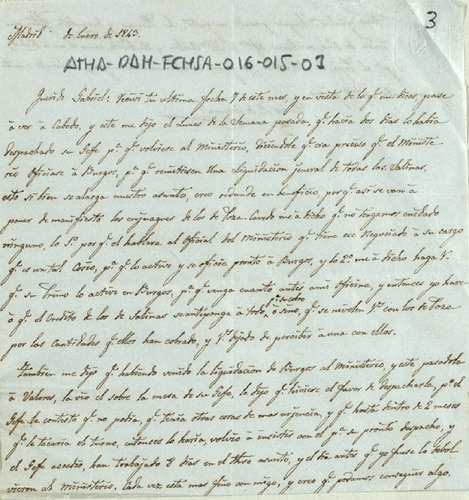 3
Madrid de Enero de 1843.
ATHA-DAH-FCHSA-016-015-03
Querido Gabriel: Recivi tu ultima fecha 7 de este mes, y en vista de lo q.e me dices, pasé
à ver à Cabedo, y este me dijo el Lunes de la Semana pasada, q.e hacia dos dias lo habia
despachado su Jefe p.a q.e volviese al Ministerio, diciendole q.e era preciso q.e el Ministe
rio Oficiase à Burgos, p.a q.e remitiesen una Liquidacion jeneral de todas las Salinas.
esto si bien se alarga nuestro asunto, creo redunda en beneficio por q.e asi se van à
poner de manifiesto los enjuagues de los de Poza. Cavedo me à dicho q.e no tengamos cuidado
ninguno, lo 1.o por q.e el hablara al Oficial del Ministerio q.e tiene ese Negociado à su cargo
q.e es un tal p.a q.e lo active y se oficie pronto à Burgos, y lo 2.o me à dicho haga V.
q.e su Primo lo active en Burgos, p.a q.e venga cuanto antes ami Oficina, y entonces yo hare
p.a su cobro
à q.e el Credito de los de Salinas se anteponga à todo, ò sino, q.e se nivelen V.s con los de Poza
por las Cantidades q.e ellos han cobrado, y V.s dejado de percibir à una con ellos.
Tambien me dijo q.e habiendo venido la liquidacion de Burgos al Ministerio, y este pasadola
à Valores, la vio el sobre la mesa de su Jefe, le dijo q.e hiciese el favor de despacharla, p.o el
Jefe le contestó q.e no podia, q.e tenia otras cosas de mas urgencia, y q.e hasta dentro de 2 meses
q.e le tocaria el turno, entonces lo haria, volvio à insistir con el p.a su pronto despacho, y
el Jefe accedio, han trabajado 8 dias en el asunto, y el dia antes q.e yo fuese lo debol
vieron al Ministerio. Cada vez esta mas fino con migo, y creo q.e podamos conseguir algo.